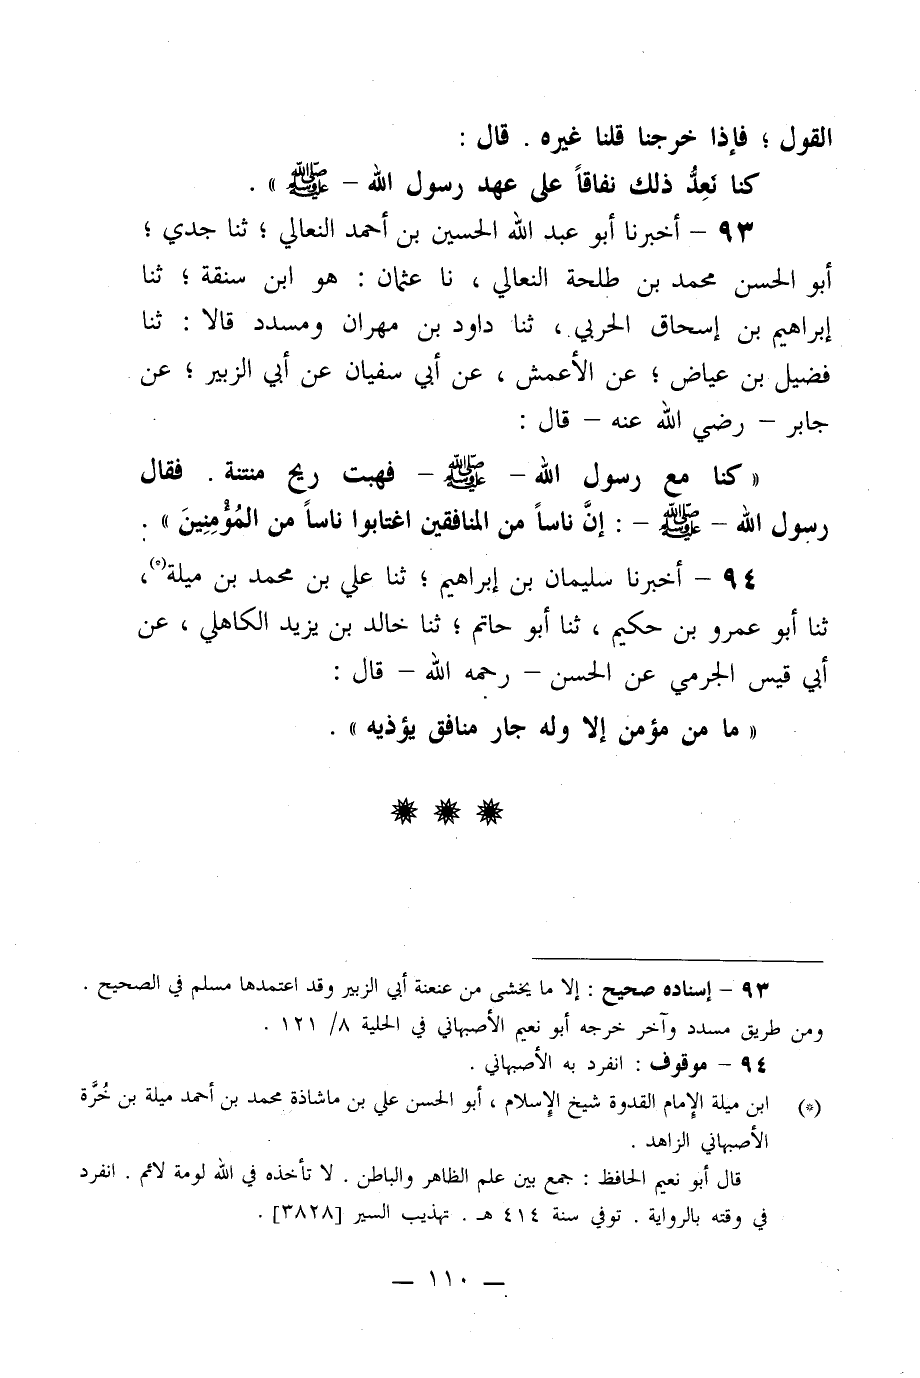 القول ؛ فإذا خرجنا قلنا غيره . قال :
كنا نَعِدُّ ذلك نفاقاً على عهد رسول الله – ﷺ » .
٩٣ – أخبرنا أبو عبد الله الحسين بن أحمد النعالي ؛ ثنا جدي ؛
أبو الحسن محمد بن طلحة النعالي ، نا عثمان : هو ابن سنقة ؛ ثنا
إبراهيم بن إسحاق الحربي ، ثنا داود بن مهران ومسدد قالا : ثنا
فضيل بن عياض ؛ عن الأعمش ، عن أبي سفيان عن أبي الزبير ؛ عن
جابر – رضي الله عنه – قال :
« كنا مع رسول الله – ﷺ – فهبت ريح منتنة . فقال
رسول الله – ﷺ – : إنَّ ناساً من المنافقين اغتابوا ناساً من المُؤْمِنِينَ » .
٩٤ – أخبرنا سليمان بن إبراهيم ؛ ثنا علي بن محمد بن ميلة(*) ،
ثنا أبو عمرو بن حكيم ، ثنا أبو حاتم ؛ ثنا خالد بن يزيد الكاهلي ، عن
أبي قيس الجرمي عن الحسن – رحمه الله – قال :
« ما من مؤمن إلا وله جار منافق يؤذيه » .
٩٣ – إسناده صحيح : إلا ما يخشى من عنعنة أبي الزبير وقد اعتمدها مسلم في الصحيح .
ومن طريق مسدد وآخر خرجه أبو نعيم الأصبهاني في الحلية ٨/ ١٢١ .
٩٤ – موقوف : انفرد به الأصبهاني .
(*) ابن ميلة الإمام القدوة شيخ الإسلام ، أبو الحسن علي بن ماشاذة محمد بن أحمد ميلة بن خُرَّة
الأصبهاني الزاهد .
قال أبو نعيم الحافظ : جمع بين علم الظاهر والباطن . لا تأخذه في الله لومة لائم . انفرد
في وقته بالرواية . توفي سنة ٤١٤ هـ . تهذيب السير [٣٨٢٨] .
– ١١٠ –